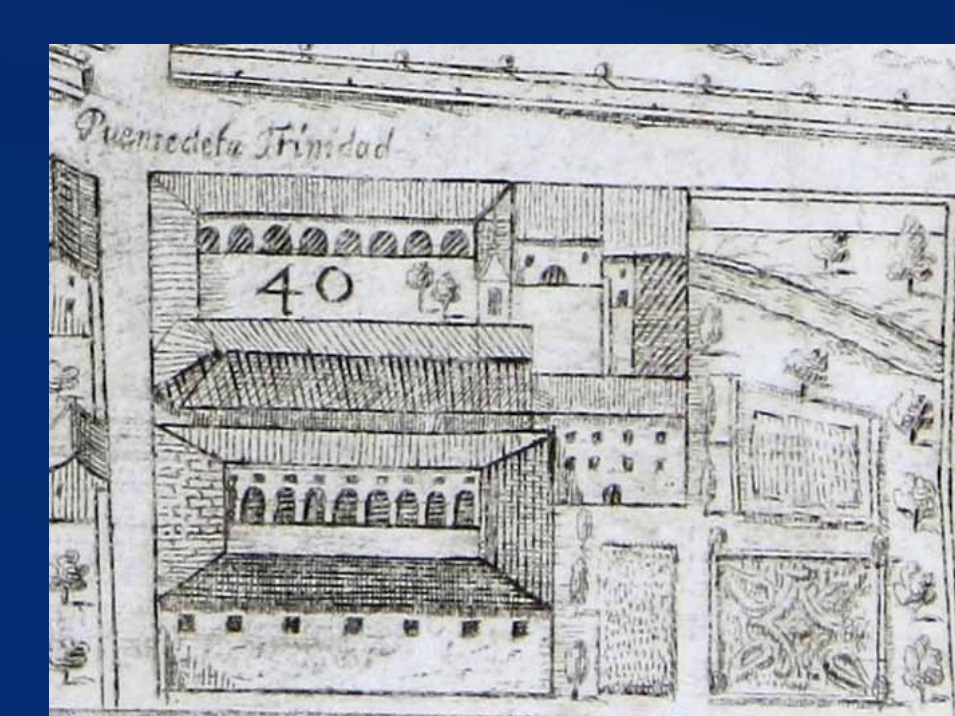 Puente de la Trinidad
40